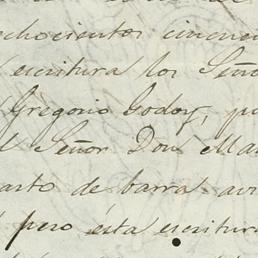 ochocientos cincuen
escritura los Seño
Gregorio Godoy, po
l Señor Don Man
arto de barra avi
pero ésta escritura